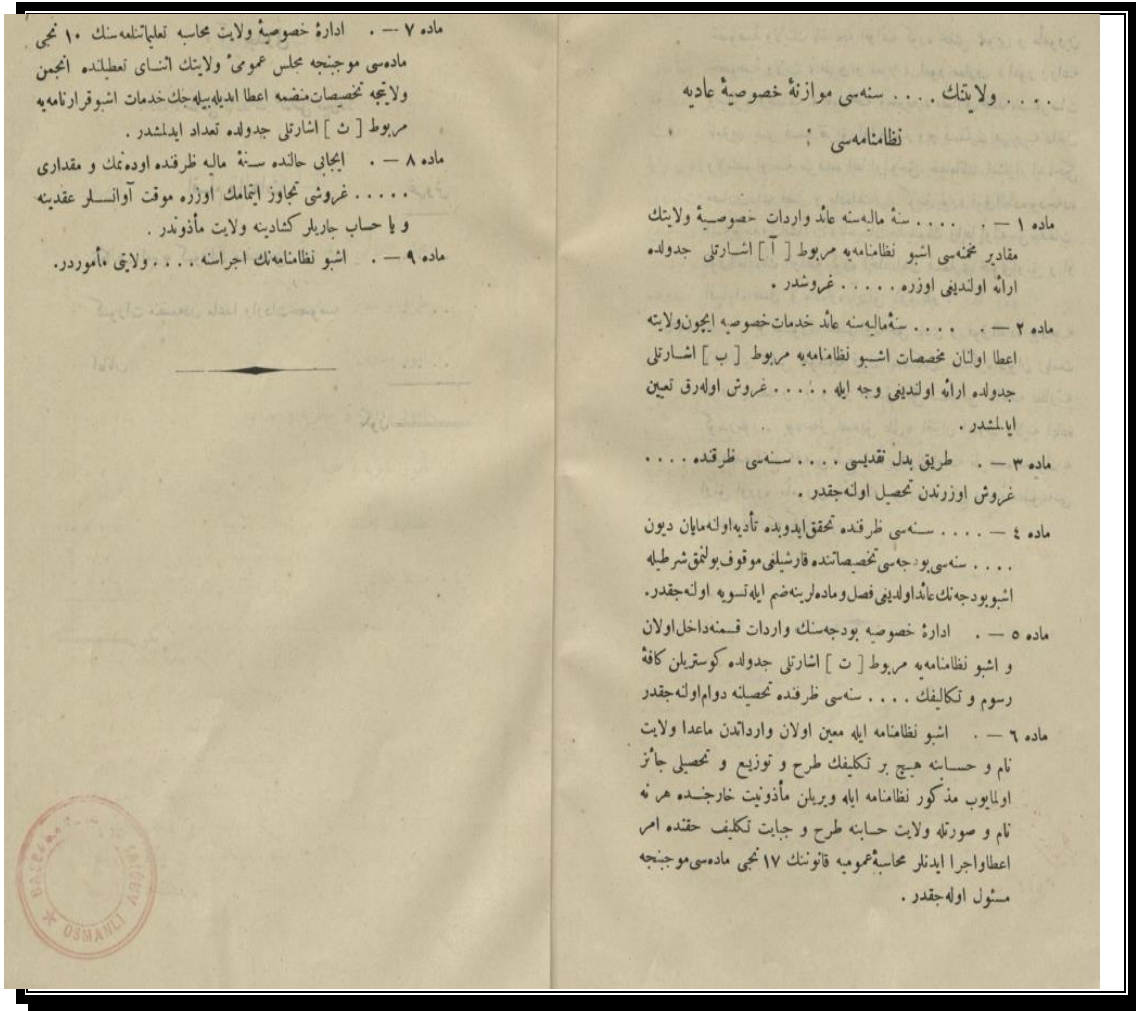 . . . . ولایتك . . . . سنه‌سی موازنهٔ خصوصیهٔ عادیه
نظامنامه‌سی :
ماده ١ — . . . . . سنهٔ مالیه‌سنه عائد واردات خصوصیهٔ ولایتك
مقادیر مخمنه‌سی اشبو نظامنامه‌یه مربوط [ آ ] اشارتلی جدولده
ارائه اولندیغی اوزره . . . . . غروشدر .
ماده ٢ — . . . . . سنهٔ مالیه‌سنه عائد خدمات خصوصیه ایچون ولایته
اعطا اولنان مخصصات اشبو نظامنامه‌یه مربوط [ ب ] اشارتلی
جدولده ارائه اولندیغی وجه ایله . . . . . غروش اوله‌رق تعیین
ایدلمشدر .
ماده ٣ — . طریق بدل نقدیسی . . . . سنه‌سی ظرفنده . . . .
غروش اوزرندن تحصیل اولنه‌جقدر .
ماده ٤ — . . . . سنه‌سی ظرفنده تحقق ایدوبده تأدیه اولنه‌مایان دیون
. . . . سنه‌سی بودجه‌سی تخصیصاتنده قارشیلغی موقوف بولنمق شرطیله
اشبو بودجه‌نك عائد اولدیغی فصل و ماده‌لرینه ضم ایله تسویه اولنه‌جقدر.
ماده ٥ — . ادارهٔ خصوصیه بودجه‌سنك واردات قسمنه داخل اولان
و اشبو نظامنامه‌یه مربوط [ ت ] اشارتلی جدولده کوستریلن کافهٔ
رسوم و تکالیفك . . . . سنه‌سی ظرفنده تحصیلنه دوام اولنه‌جقدر
ماده ٦ — . اشبو نظامنامه ایله معین اولان وارداتدن ماعدا ولایت
نام و حسابنه هیچ بر تکلیفك طرح و توزیع و تحصیلی جائز
اولمایوب مذکور نظامنامه ایله ویریلن مأذونیت خارجنده هر نه
نام و صورتله ولایت حسابنه طرح و جبایت تکلیف حقنده امر
اعطا واجرا ایدنلر محاسبهٔ عمومیه قانوننك ١٧ نجی ماده‌سی موجبنجه
مسئول اوله‌جقدر .
ماده ٧ — . ادارهٔ خصوصیهٔ ولایت محاسبه تعلیماتنامه‌سنك ١٠ نجی
ماده‌سی موجبنجه مجلس عمومیٔ ولایتك اثنای تعطیلنده انجمن
ولایتجه تخصیصات منضمه اعطا ایدیله‌بیله‌جك خدمات اشبو قرارنامه‌یه
مربوط [ ث ] اشارتلی جدولده تعداد ایدلمشدر .
ماده ٨ — . ایجابی حالنده سنهٔ مالیه ظرفنده اوده‌نمك و مقداری
. . . . . غروشی تجاوز ایتمامك اوزره موقت آوانسلر عقدینه
و یا حساب جاریلر کشادینه ولایت مأذوندر .
ماده ٩ — . اشبو نظامنامه‌نك اجراسنه . . . . ولایتی مأموردر.
OSMANLI